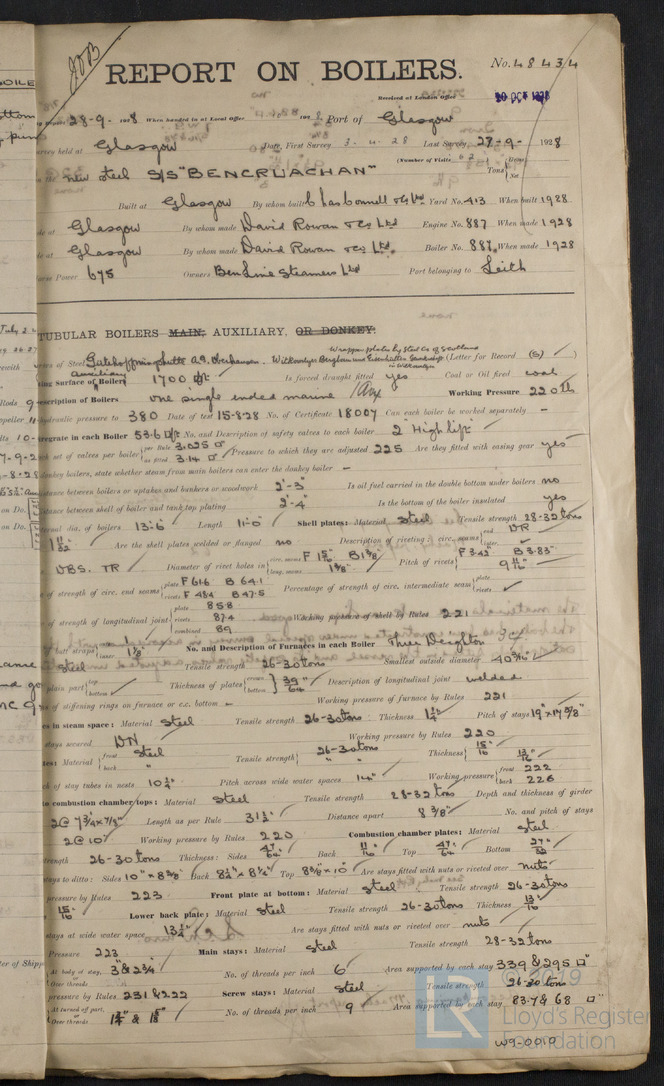 REPORT ON BOILERS.
No. 48434
Received at London Office
30 OCT 1928
28-9-1928 When handed in at Local Office Port of Glasgow
Survey held at Glasgow Date, First Survey 3-4-28 Last Survey 27-9-1928
(Number of Visits 62)
new steel S/S "BENCRUACHAN" Tons
Built at Glasgow By whom built Chas Connell & Co Ltd Yard No. 413 When built 1928
Glasgow By whom made David Rowan & Co Ltd Engine No. 887 When made 1928
Glasgow By whom made David Rowan & Co Ltd. Boiler No. 887. When made 1928
Horse Power 675 Owners Ben Line Steamers Ltd Port belonging to Leith
TUBULAR BOILERS MAIN, AUXILIARY, OR DONKEY.
Wrapper plates by Steel Co of Scotland
of Steel Gutehoffnungshutte A.G. Oberhausen. (Letter for Record (S))
Auxiliary
Surface of Boilers 1700 Is forced draught fitted yes Coal or Oil fired coal
Description of Boilers one single ended marine 1 Aux Working Pressure 220 lb
hydraulic pressure to 380 Date of test 15-8-28 No. of Certificate 18007 Can each boiler be worked separately –
in each Boiler 53.6 No. and Description of safety valves to each boiler 2 High lift
set of valves per boiler per Rule 3.025 as fitted 3.14 Pressure to which they are adjusted 225 Are they fitted with easing gear yes
donkey boilers, state whether steam from main boilers can enter the donkey boiler –
distance between boilers or uptakes and bunkers or woodwork 2'-3" Is oil fuel carried in the double bottom under boilers no
distance between shell of boiler and tank top plating 2'-4" Is the bottom of the boiler insulated yes
dia. of boilers 13'-6" Length 11'-0" Shell plates: Material Steel Tensile strength 28-32 tons
1 11/32" Are the shell plates welded or flanged no Description of riveting: circ. seams end DR
DBS. TR Diameter of rivet holes in circ. seams F 1 5/16 B 1 3/8 long. seams 1 3/8" Pitch of rivets F 3.42" B 3.83" 9 11/16"
of strength of circ. end seams plate F 61.6 B 64.1 rivets F 48.4 B 47.5 Percentage of strength of circ. intermediate seam plate rivets
of strength of longitudinal joint plate 85.8 rivets 87.4 combined 89 Working pressure of shell by Rules 221
butt straps 1" 1 1/8" No. and Description of Furnaces in each Boiler Three Deighton
Steel Tensile strength 26-30 tons Smallest outside diameter
plain part top bottom Thickness of plates crown bottom 39/64" Description of longitudinal joint welded
of stiffening rings on furnace or c.c. bottom – Working pressure of furnace by Rules 221
in steam space: Material Steel Tensile strength 26-30 tons Thickness 1 1/4" Pitch of stays 19" x 17 5/8"
stays secured DN Working pressure by Rules 220
Material front Steel back " Tensile strength 26-30 tons " " Thickness 15/16 13/16"
of stay tubes in nests 10 1/4" Pitch across wide water spaces 14" Working pressure front 222 back 226
to combustion chamber tops: Material Steel Tensile strength 28-32 tons Depth and thickness of girder
2@ 7 3/4 x 7/8" Length as per Rule 31 1/2" Distance apart 8 3/8" No. and pitch of stays
2@ 10" Working pressure by Rules 220 Combustion chamber plates: Material Steel
strength 26-30 tons Thickness: Sides 47/64" Back 11/16" Top 47/64" Bottom 27/32"
stays to ditto: Sides 10" x 8 3/8" Back 8 1/2" x 8 1/4" Top 8 3/8" x 10" Are stays fitted with nuts or riveted over nuts
pressure by Rules 223 Front plate at bottom: Material Steel Tensile strength 26-30 tons
15/16" Lower back plate: Material Steel Tensile strength 26-30 tons Thickness 13/16"
stays at wide water space 13 1/4" Are stays fitted with nuts or riveted over nuts
Pressure 223 Main stays: Material Steel Tensile strength 28-32 tons
At body of stay, Over threads 3" & 2 3/4" No. of threads per inch 6 Area supported by each stay 339 & 295
pressure by Rules 231 & 222 Screw stays: Material Steel Tensile strength 26-30 tons
At turned off part, Over threads 1 3/4" & 1 5/8" No. of threads per inch 9 Area supported by each stay 83.7 & 68
© 2019
Lloyd's Register
Foundation
W9-0010